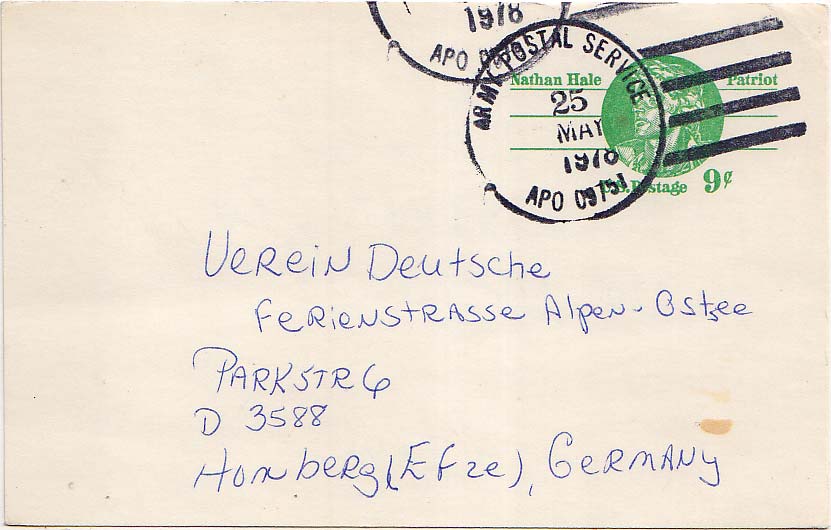 1978
APO 09
ARMY POSTAL SERVICE
25
MAY
1978
APO 09751
Nathan Hale Patriot
U.S. Postage 9¢
Verein Deutsche
Ferienstrasse Alpen-Ostsee
Parkstr 6
D 3588
Homberg (Efze), Germany